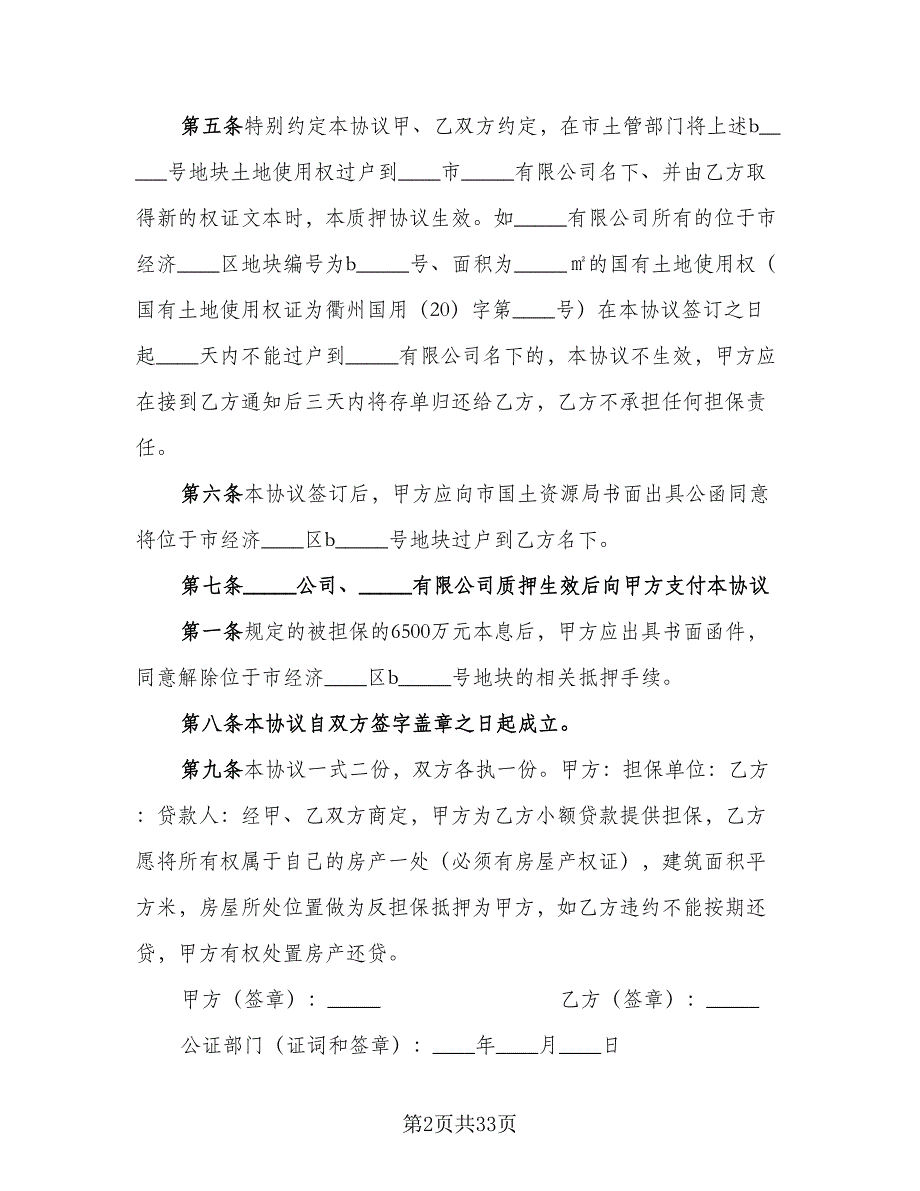 第五条特别约定本协议甲、乙双方约定，在市土管部门将上述b__
___号地块土地使用权过户到____市_____有限公司名下、并由乙方取
得新的权证文本时，本质押协议生效。如_____有限公司所有的位于市
经济____区地块编号为b_____号、面积为_____㎡的国有土地使用权（
国有土地使用权证为衢州国用（20）字第____号）在本协议签订之日
起____天内不能过户到_____有限公司名下的，本协议不生效，甲方应
在接到乙方通知后三天内将存单归还给乙方，乙方不承担任何担保责
任。
第六条本协议签订后，甲方应向市国土资源局书面出具公函同意
将位于市经济____区b_____号地块过户到乙方名下。
第七条_____公司、_____有限公司质押生效后向甲方支付本协议
第一条规定的被担保的6500万元本息后，甲方应出具书面函件，
同意解除位于市经济____区b_____号地块的相关抵押手续。
第八条本协议自双方签字盖章之日起成立。
第九条本协议一式二份，双方各执一份。甲方：担保单位：乙方
：贷款人：经甲、乙双方商定，甲方为乙方小额贷款提供担保，乙方
愿将所有权属于自己的房产一处（必须有房屋产权证），建筑面积平
方米，房屋所处位置做为反担保抵押为甲方，如乙方违约不能按期还
贷，甲方有权处置房产还贷。
甲方（签章）：_____ 乙方（签章）：_____
公证部门（证词和签章）：____年____月____日
第2页共33页